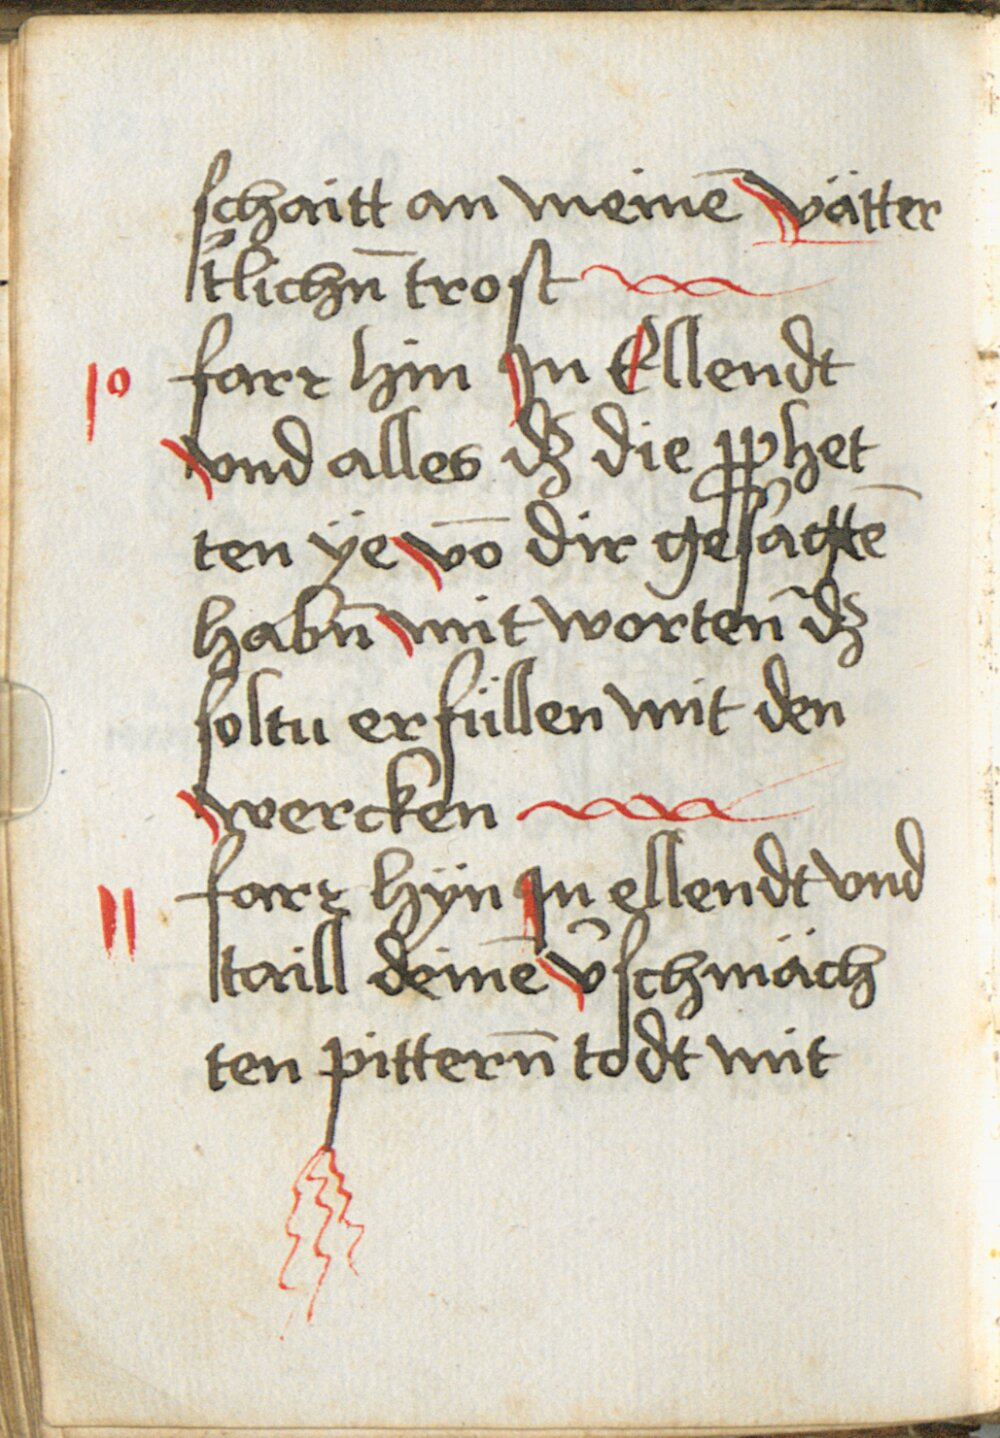 schaitt an meinē vätter
tlichn̄ trost
10 farr hin In Ellendt
vnd alles dz die pphet
ten ÿe vō dir gesagtē
habn̄ mit worten̄ dz
soltu erfüllen mit den
wercken
11 farr hÿn In ellendt vnd
taill deinē v̄schmäch
ten pittern̄ todt mit